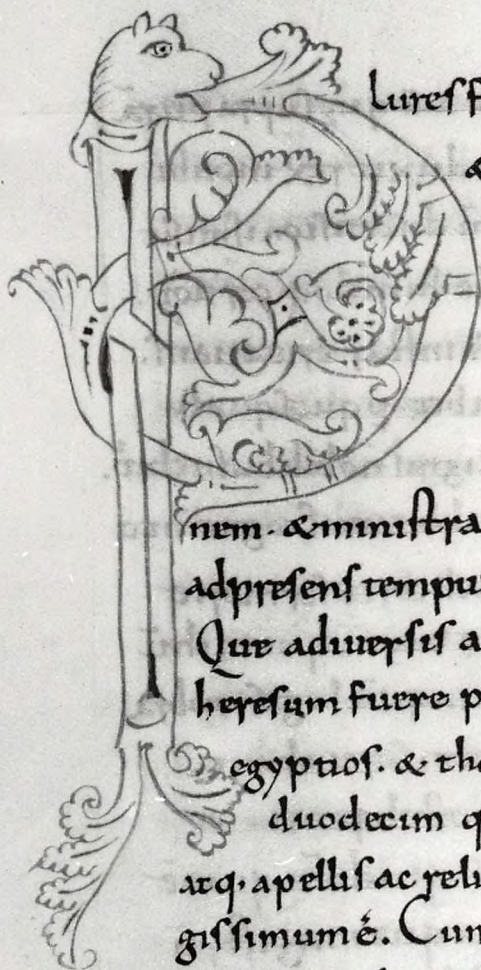 Plures f
&
nem. & ministra
adpresens tempu
Que adiuersis a
heresum fuere p
egyptios. & the
duodecim q
atq. apellis ac reli
gissimum ē. Cum